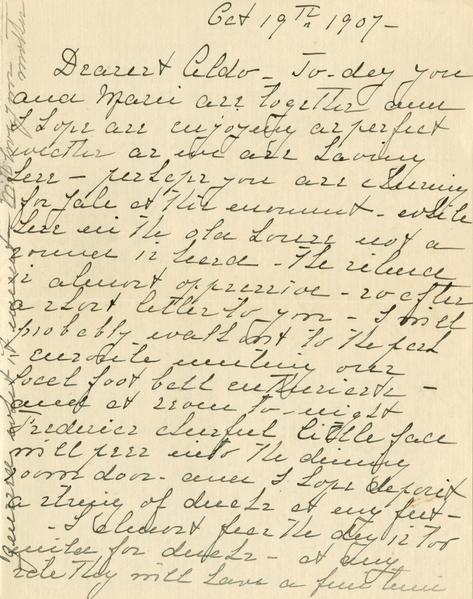 Oct 19th 1907-
Dearest Aldo - To-day you
and Marie are together and
I hope are enjoying as perfect
weather as we are having
here - perhaps you are cheering
for Yale at this moment - while
here in the old house not a
sound is heard - The silence
is almost oppressive - so after
a short letter to you - I will
probably walk out to the park
- meeting our
local foot ball enthusiasts -
and at seven to-night
Frederics cheerful little face
will peer into the dining
room door - and I hope deposit
a string of ducks at my feet -
- I almost fear the day is too
for ducks - at any
rate they will have a fine time